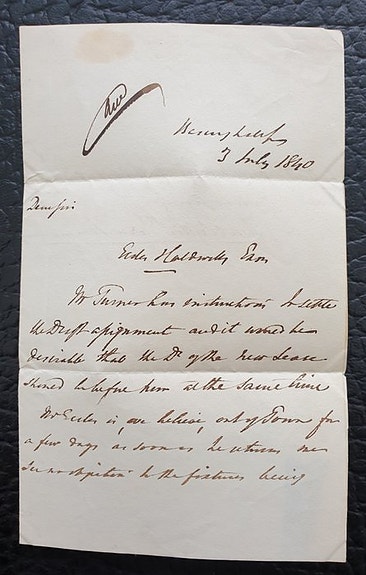 3 July 1840
Dear Sir
Eccles Esqre
Mr Turner has instructions to settle
the Draft assignment and it would be
desirable that the Dt of the new Lease
should be before him at the same time
Mr Eccles is, we believe, out of Town for
a few days as soon as he returns we
see no objection to the fixtures being